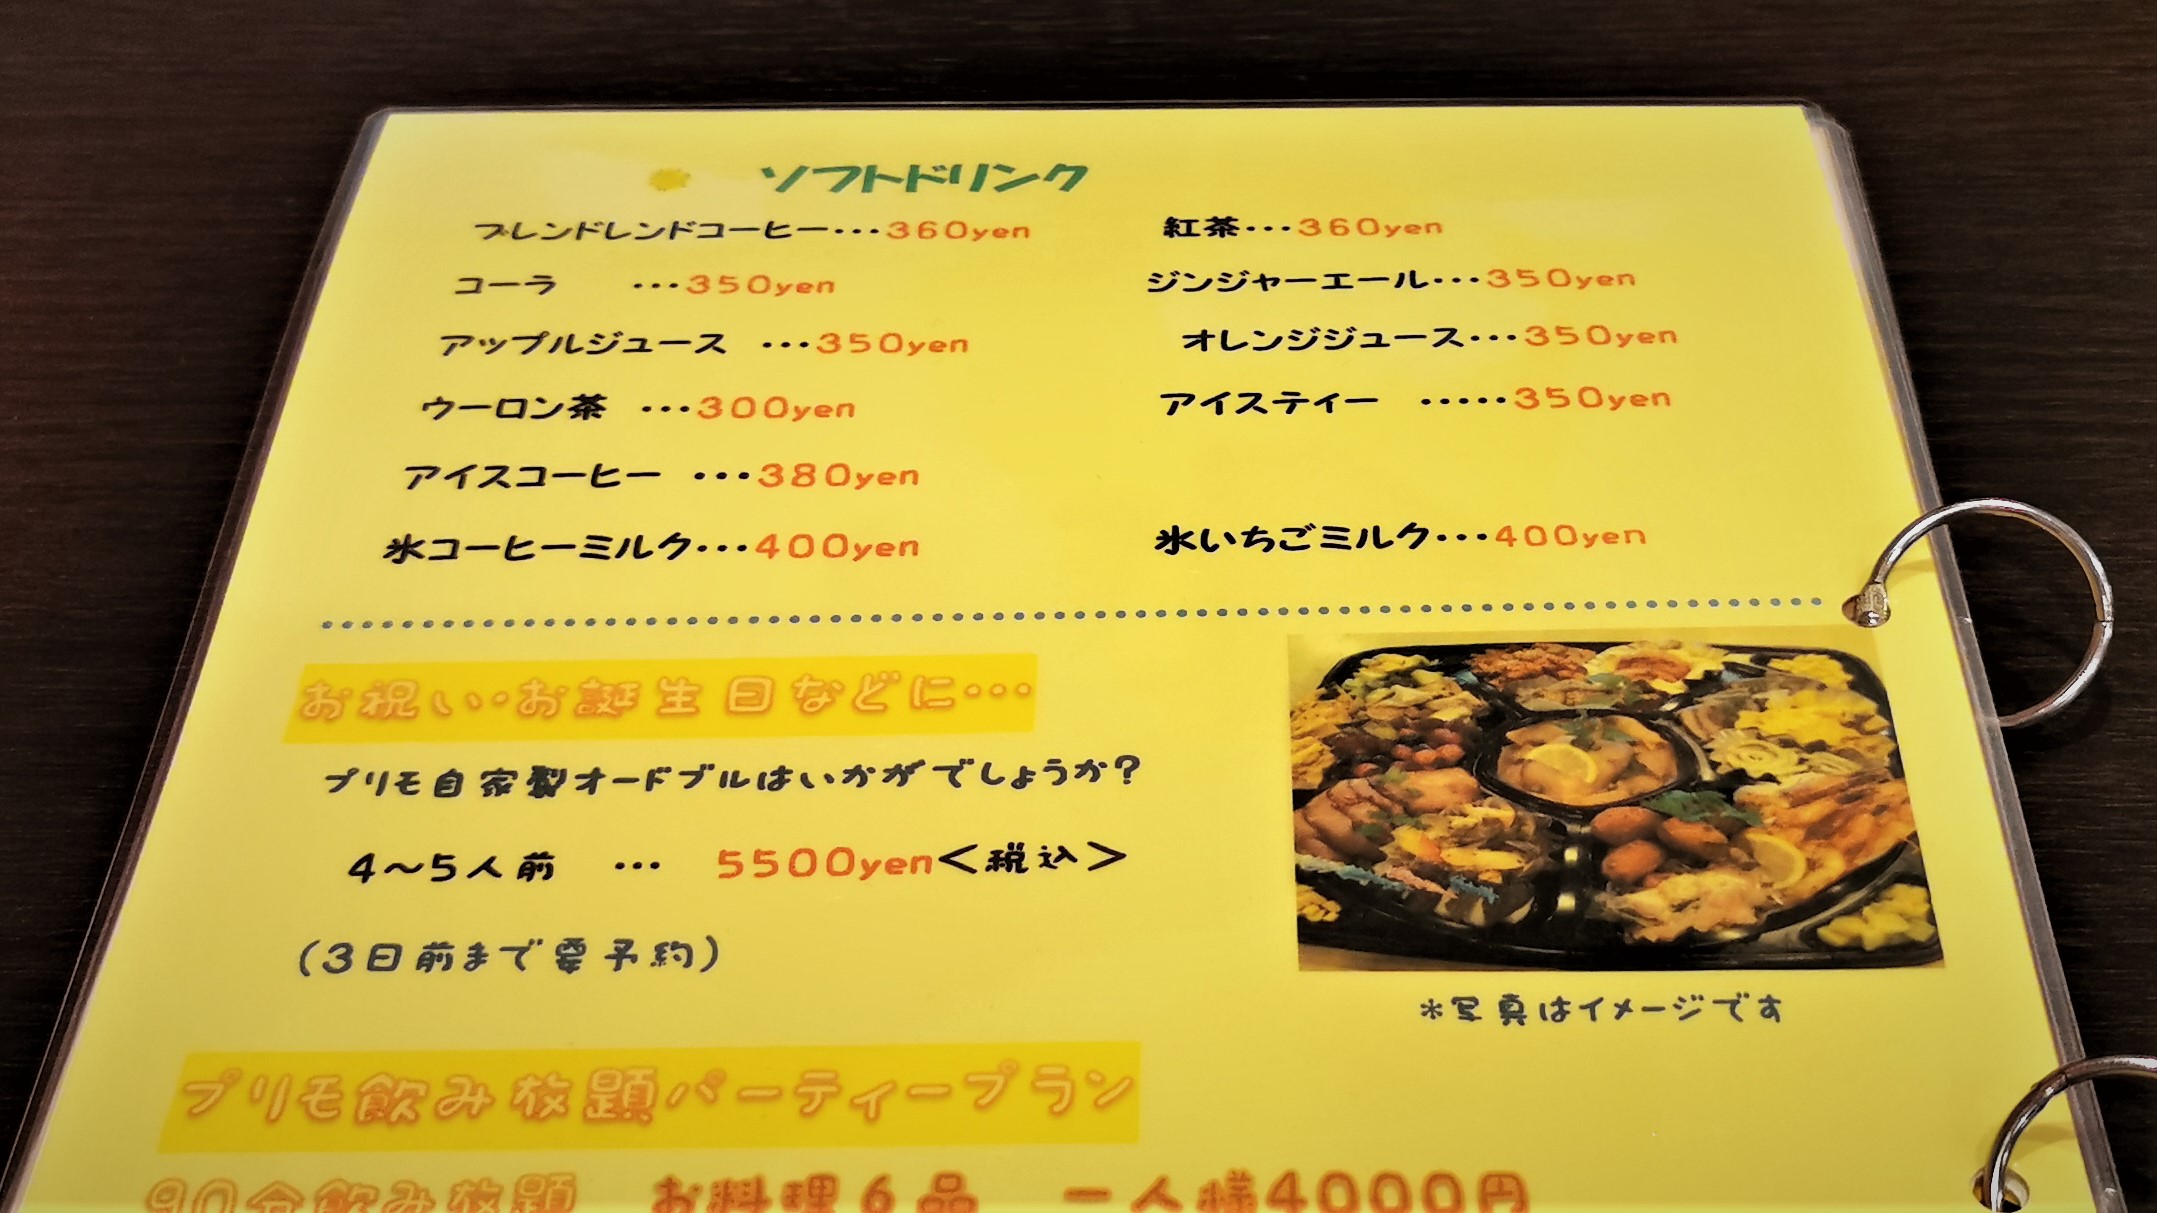 ソフトドリンク
ブレンドレンドコーヒー･･･360yen 紅茶･･･360yen
コーラ ･･･350yen ジンジャーエール･･･350yen
アップルジュース ･･･350yen オレンジジュース･･･350yen
ウーロン茶 ･･･300yen アイスティー ･････350yen
アイスコーヒー ･･･380yen
氷コーヒーミルク･･･400yen 氷いちごミルク･･･400yen
お祝い･お誕生日などに･･･
プリモ自家製オードブルはいかがでしょうか?
4～5人前 ･･･ 5500yen＜税込＞
(3日前まで要予約)
*写真はイメージです
プリモ飲み放題パーティープラン
90分飲み放題 お料理6品 一人様4000円